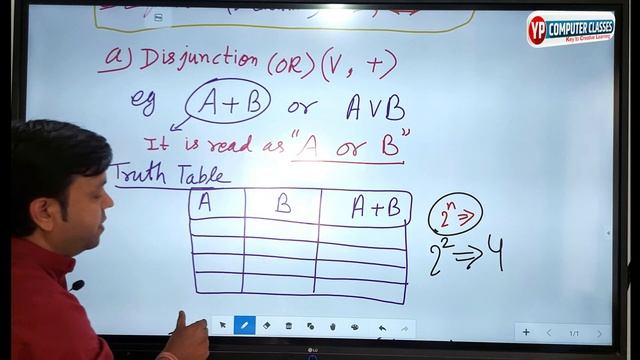 YP COMPUTER CLASSES
Key to Creative Learning
a) Disjunction (OR) (V, +)
eg A+B or A∨B
It is read as "A or B"
Truth Table
A B A+B
2ⁿ ⇒
2² ⇒ 4
1/1
LG